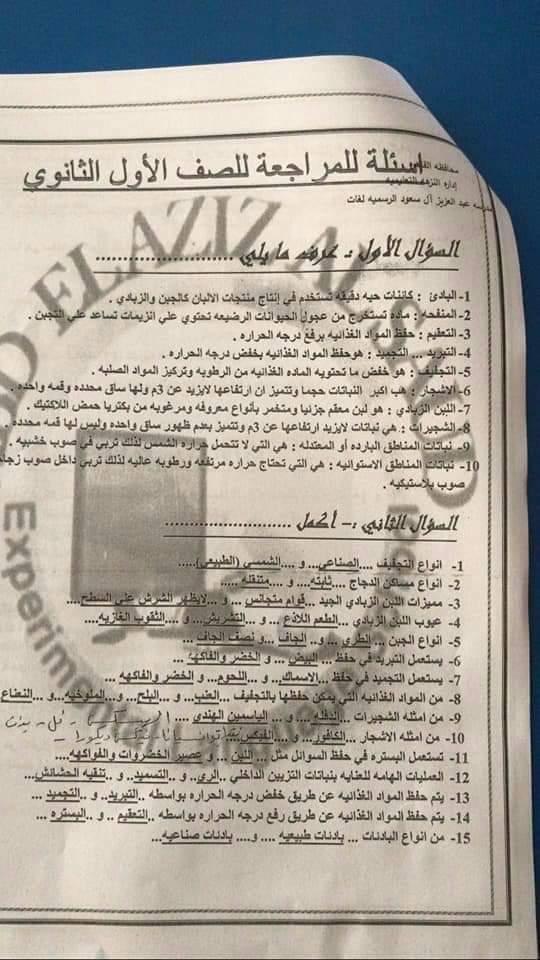 محافظه
اداره النزهه التعليميه
عبد العزيز آل سعود الرسميه لغات
اسئلة للمراجعة للصف الأول الثانوي
السؤال الأول : عرف ما يلي ........................
1- البادئ : كائنات حيه دقيقه تستخدم في إنتاج منتجات الالبان كالجبن والزبادي .
2- المنفحه : ماده تستخرج من عجول الحيوانات الرضيعه تحتوي علي انزيمات تساعد علي التجبن .
3- التعقيم : حفظ المواد الغذائيه برفع درجه الحراره .
4- التبريد ... التجميد : هوحفظ المواد الغذائيه بخفض درجه الحراره .
5- التجفيف : هو خفض ما تحتويه الماده الغذائيه من الرطوبه وتركيز المواد الصلبه .
6- الاشجار : هب اكبر النباتات حجما وتتميز ان ارتفاعها لايزيد عن 3م ولها ساق محدده وقمه واحده .
7- اللبن الزبادي : هو لبن معقم جزئيا ومتخمر بأنواع معروفه ومرغوبه من بكتريا حمض اللاكتيك .
8- الشجيرات : هي نباتات لايزيد ارتفاعها عن 3م وتتميز بعدم ظهور ساق واحده وليس لها قمه محدده .
9- نباتات المناطق البارده أو المعتدله : هي التي لا تتحمل حراره الشمس لذلك تربي في صوب خشبيه .
10- نباتات المناطق الاستوائيه : هي التي تحتاج حراره مرتفعه ورطوبه عاليه لذلك تربي داخل صوب
صوب بلاستيكيه .
السؤال الثاني :- أكمل ........................
1- انواع التجفيف ....الصناعي... و ....الشمسي (الطبيعي).....
2- انواع مساكن الدجاج ....ثابته.... و ....متنقله .....
3- مميزات اللبن الزبادي الجيد ..قوام متجانس ... و ...لايظهر الشرش علي السطح....
4- عيوب اللبن الزبادي ....الطعم اللاذع ... و ...التشريش... و ....الثقوب الغازيه....
5- انواع الجبن ...الطري ... و ..الجاف ... و نصف الجاف ...
6- يستعمل التبريد في حفظ ...البيض ... و الخضر والفاكهه ...
7- يستعمل التجميد في حفظ ..الاسماك... و ...اللحوم... و الخضر والفاكهه ...
8- من المواد الغذائيه التي يمكن حفظها بالتجفيف ..العنب... و ...البلح ... و...الملوخيه... و ..النعناع
9- من امثله الشجيرات ...الدفله.... و ... الياسمين الهندي ....
10- من امثله الاشجار ...الكافور... و ...الفيكس...
11- تستعمل البستره في حفظ السوائل مثل ... اللبن ... و عصير الخضروات والفواكهه....
12- العمليات الهامه للعنايه بنباتات التزيين الداخلي ..الري.. و ..التسميد... و ..تنقيه الحشائش...
13- يتم حفظ المواد الغذائيه عن طريق خفض درجه الحراره بواسطه ..التبريد.. و ..التجميد ...
14- يتم حفظ المواد الغذائيه عن طريق رفع درجه الحراره بواسطه ..التعقيم .. و ..البستره ...
15- من انواع البادئات ... بادئات طبيعيه .... و.... بادئات صناعيه...
EL AZIZ AL
Experim